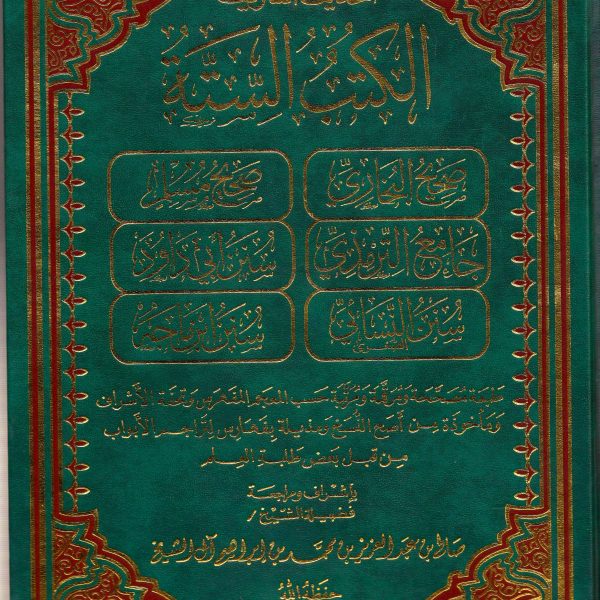 الكتب الستة
صحيح البخاري
صحيح مسلم
جامع الترمذي
سنن أبي داود
سنن النسائي
سنن ابن ماجه
طبعة مصححة ومرقمة ومرتبة حسب المعجم المفهرس وتحفة الأشراف
ومأخوذة من أصح النسخ ومذيلة بفهارس لتراجم الأبواب
من قبل بعض طلبة العلم
بإشراف ومراجعة
فضيلة الشيخ /
صالح بن عبد العزيز بن محمد بن إبراهيم آل الشيخ
حفظه الله